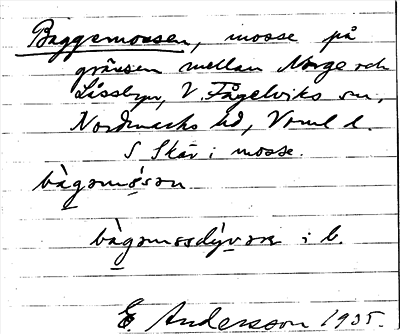 Baggemossen, mosse på
gränsen mellan Norge och
Lässbyn, V. Fågelviks sn,
Nordmarks hd, Vrml l.
S Skär i mosse.
bàgamósan
bàgamosdývan i b.
E. Andersson 1935.